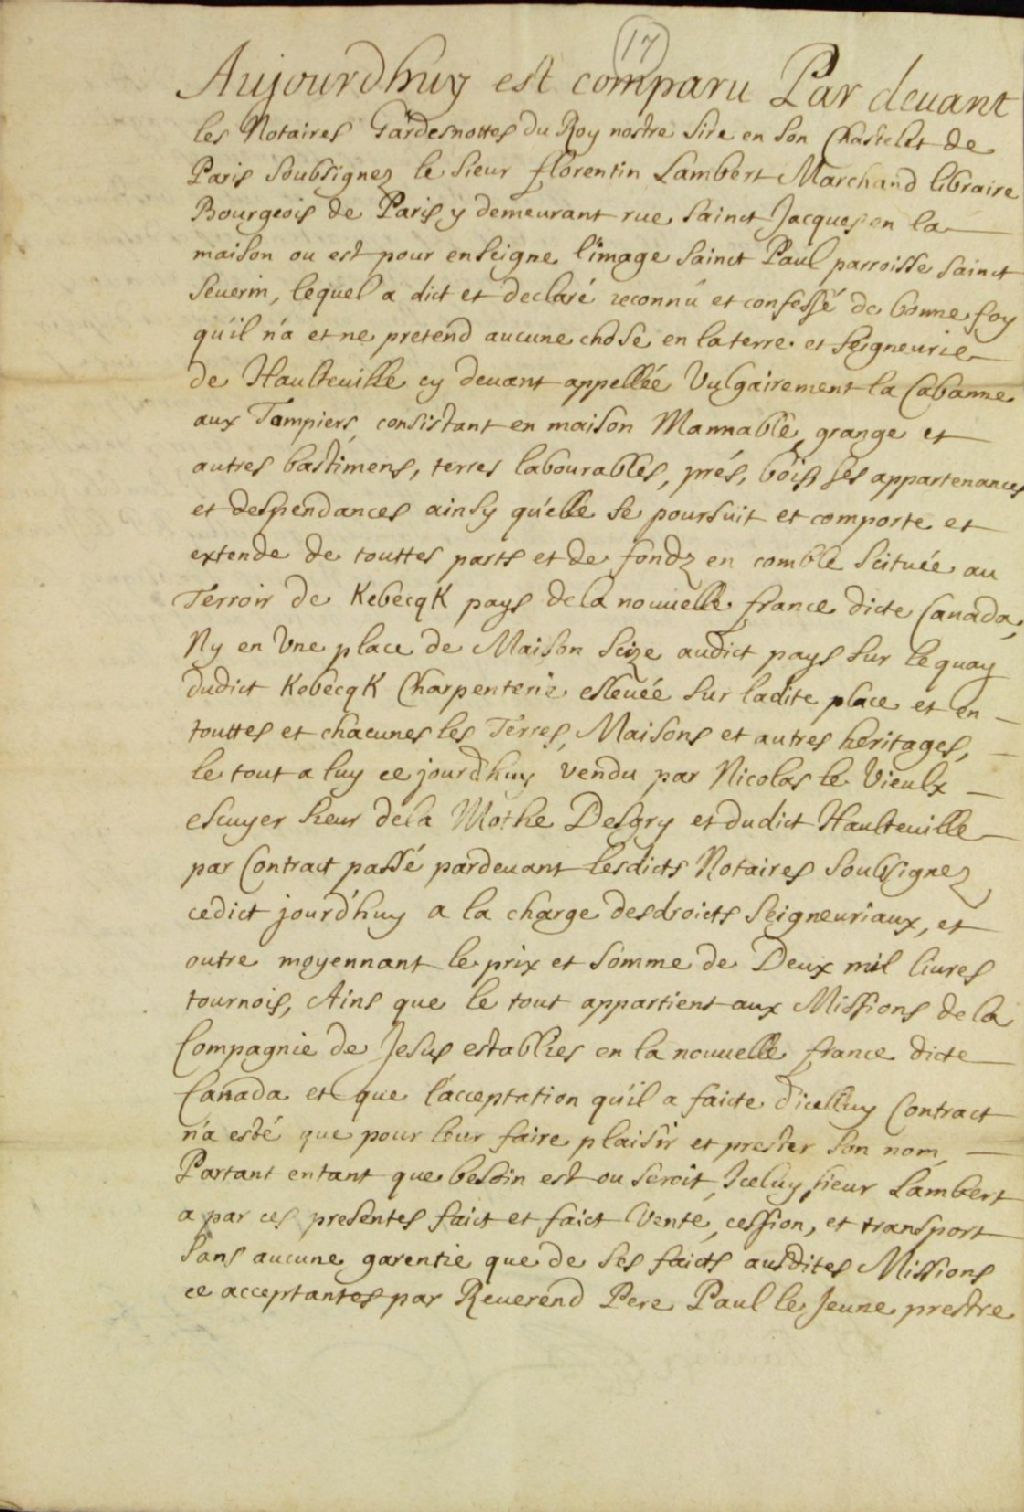 17
Aujourdhuy est comparu Par deuant
les Notaires Gardesnottes du Roy nostre sire en son Chastelet de
Paris soubsignez le sieur florentin Lambert Marchand libraire
Bourgeois de Paris y demeurant rue sainct Jacques en la
maison ou est pour enseigne l'image sainct Paul parroisse sainct
Seuerin, lequel a dict et declaré reconnû et confessé de bonne foy
qu'il n'a et ne pretend aucune chose en la terre et seigneurie
de Haulteuille cy deuant appellée Vulgairement la Cabanne
aux Tampiers, consistant en maison Mannable, grange et
autres bastimens, terres labourables, prés, bois ses appartenances
et despendances ainsy qu'elle se poursuit et comporte et
extende de touttes parts et de fondz en comble scituée au
Terroir de KebecqK pays de la nouuelle france dicte Canada,
Ny en Vne place de Maison size audict pays sur le quay
dudict KebecqK Charpenterie esleuée sur ladite place et en
touttes et chacunes les Terres, Maisons et autres heritages,
le tout a luy ce jourd'huy vendu par Nicolas le Vieulx
escuyer sieur de la Mothe Desgry et dudict Haulteuille
par Contract passé pardeuant lesdicts Notaires soubsignez
cedict jourd'huy a la charge des droicts seigneuriaux, et
outre moyennant le prix et somme de Deux mil liures
tournois, Ains que le tout appartient aux Missions de la
Compagnie de Jesus establies en la nouuelle france dicte
Canada et que l'acceptation qu'il a faicte d'icelluy Contract
n'a esté que pour leur faire plaisir et prester son nom,
Partant entant que besoin est ou seroit, Iceluy sieur Lambert
a par ces presentes faict et faict Vente, cession, et transport
sans aucune garentie que de ses faicts ausdites Missions
ce acceptantes par Reuerend Pere Paul le Jeune prestre